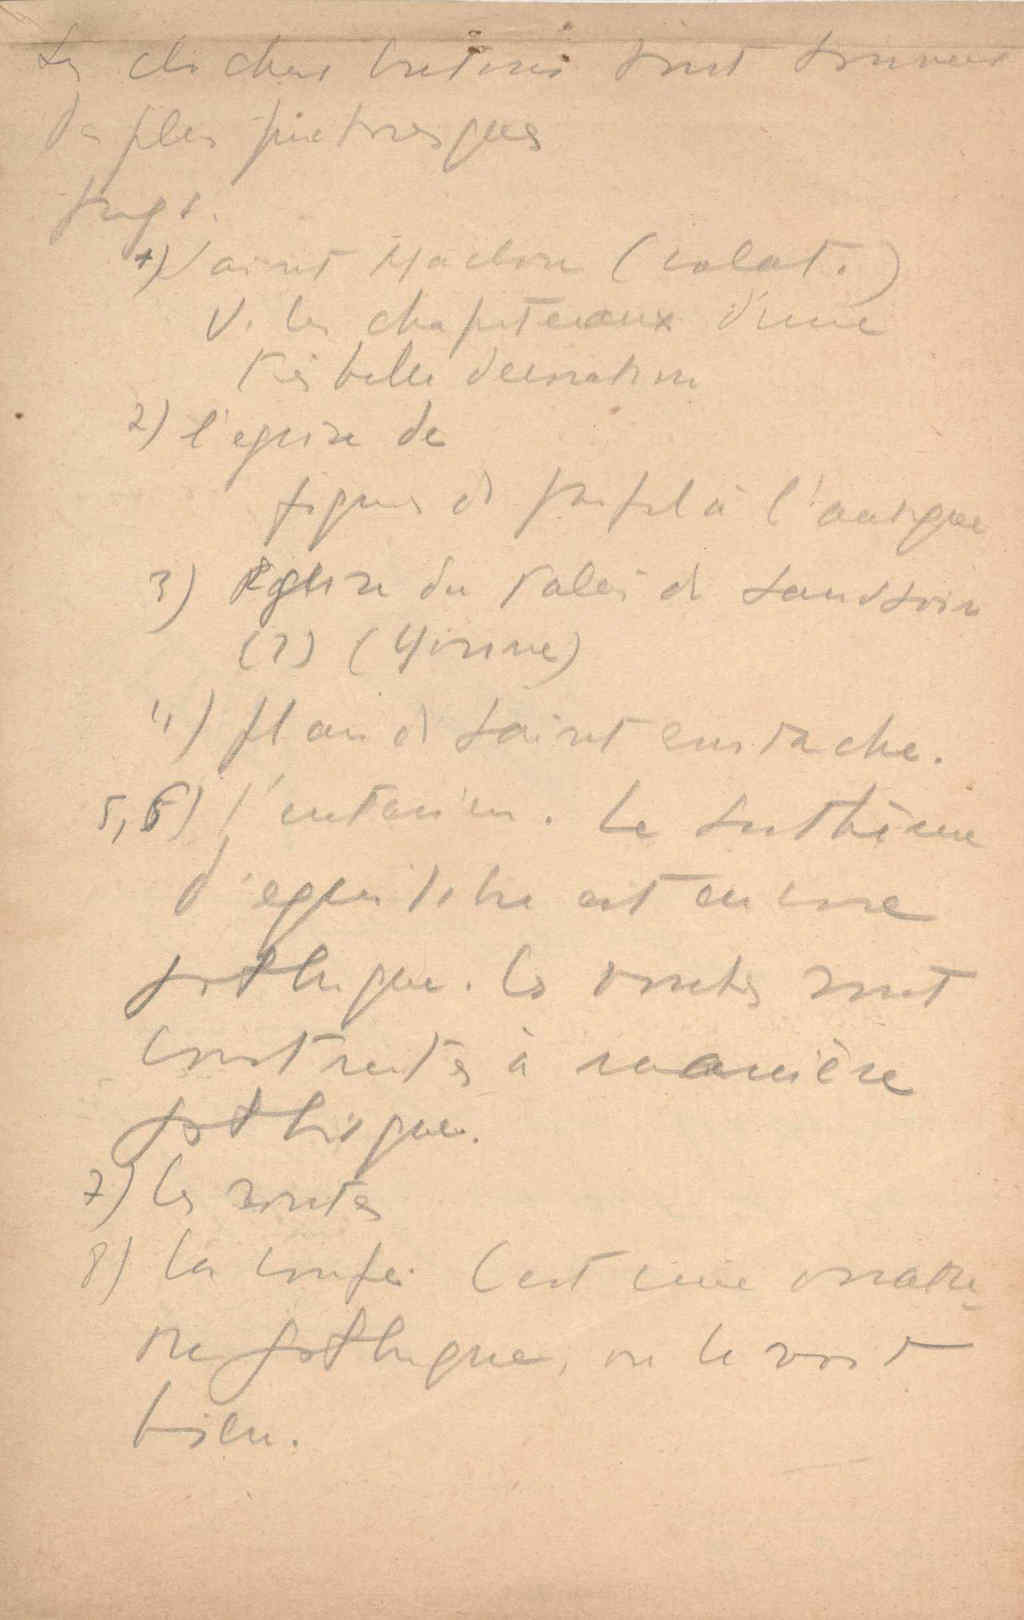 Les clochers bretons sont souvent
des plus pittoresques
1) Saint Maclou (
V. les chapiteaux d'une
très belle décoration
2) l'eglise de
figures de profil à l'antique
3) Eglise du
(?) (Yonne)
4) plan de Saint Eustache.
5, 6) l'interieur. Le système
d'equilibre est encore
gothique. Les voutes sont
construites à manière
gothique.
7) les voutes
8) La coupe. C'est une
gothique, on le voit
bien.